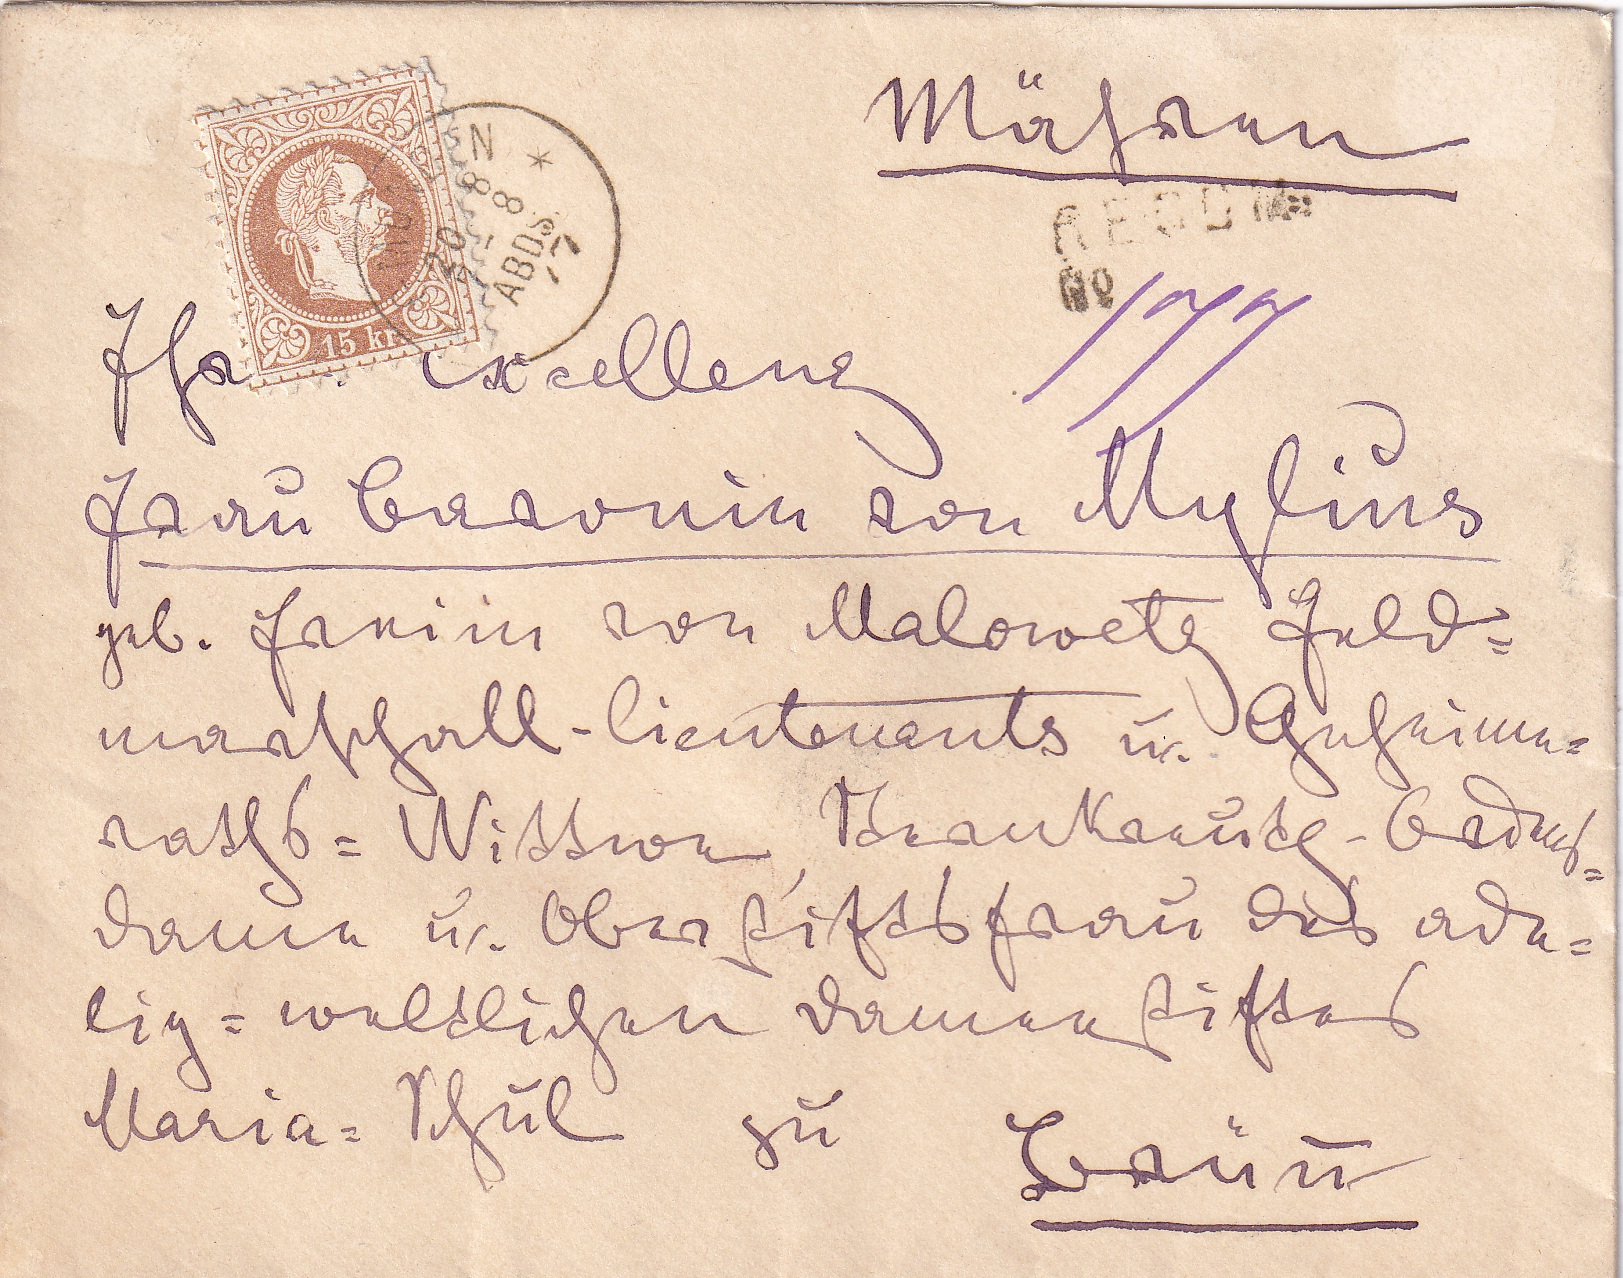 Mähren
N *
8 8
20
ABDS
17
15 kr
RECOM=
No 177
Ihre Excellenz
Frau Baronin von Mylius
geb. Freiin von Malowetz Feld=
marschall-Lieutenants u. Geheime=
raths= Wittwe, Sternkreutz-Ordens=
dame u. Oberstiftsfrau des ade=
lig= weltlichen Damenstiftes
Maria= Schul zu
Brünn